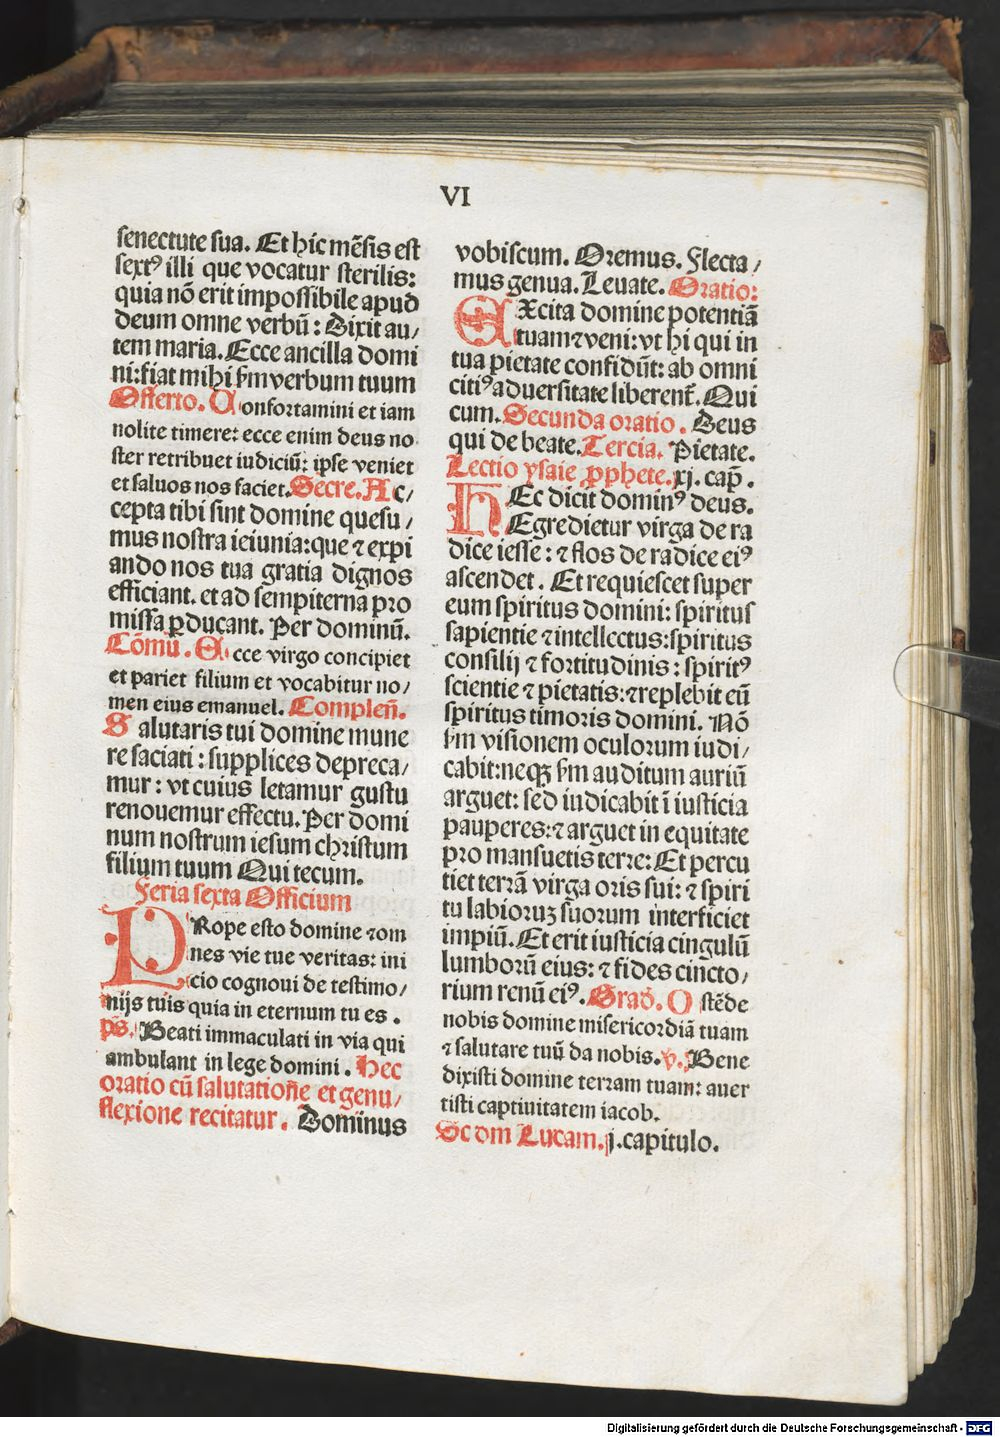 VI
senectute sua. Et hic mēsis est
sextꝰ illi que vocatur sterilis:
quia nō erit impossibile apud
deum omne verbū: Dixit au/
tem maria. Ecce ancilla domi
ni: fiat mihi ẜm verbum tuum
Offerto. Confortamini et iam
nolite timere: ecce enim deus no
ster retribuet iudiciū: ipse veniet
et saluos nos faciet. Secre. Ac/
cepta tibi sint domine quesu/
mus nostra ieiunia: que ⁊ expi
ando nos tua gratia dignos
efficiant. et ad sempiterna pro
missa ꝑducant. Per dominū.
Cōmū. Ecce virgo concipiet
et pariet filium et vocabitur no/
men eius emanuel. Complen̄.
Salutaris tui domine mune
re saciati: supplices depreca/
mur: vt cuius letamur gustu
renouemur effectu. Per domi
num nostrum iesum christum
filium tuum Qui tecum.
Feria sexta Officium
PRope esto domine ⁊ om
nes vie tue veritas: ini
cio cognoui de testimo/
nijs tuis quia in eternum tu es.
ps. Beati immaculati in via qui
ambulant in lege domini. Hec
oratio cū salutatione et genu/
flexione recitatur. Dominus
vobiscum. Oremus. Flecta/
mus genua. Leuate. Oratio:
EXcita domine potentiā
tuam ⁊ veni: vt hi qui in
tua pietate confidūt: ab omni
citiꝰ aduersitate liberent̄. Qui
cum. Secunda oratio. Deus
qui de beate. Tercia. Pietate.
Lectio ysaie ꝓphete. xj. cap̄.
HEc dicit dominꝰ deus.
Egredietur virga de ra
dice iesse: ⁊ flos de radice eiꝰ
ascendet. Et requiescet super
eum spiritus domini: spiritus
sapientie ⁊ intellectus: spiritus
consilij ⁊ fortitudinis: spiritꝰ
scientie ⁊ pietatis: ⁊ replebit eū
spiritus timoris domini. Nō
ẜm visionem oculorum iudi/
cabit: neqꝫ ẜm auditum auriū
arguet: sed iudicabit ī iusticia
pauperes: ⁊ arguet in equitate
pro mansuetis terre: Et percu
tiet terrā virga oris sui: ⁊ spiri
tu labioruꝫ suorum interficiet
impiū. Et erit iusticia cingulū
lumborū eius: ⁊ fides cincto/
rium renū eiꝰ. Grad. Ostēde
nobis domine misericordiā tuam
⁊ salutare tuū da nobis. v. Bene
dixisti domine terram tuam: auer
tisti captiuitatem iacob.
Scdm Lucam. j. capitulo.
Digitalisierung gefördert durch die Deutsche Forschungsgemeinschaft - DFG